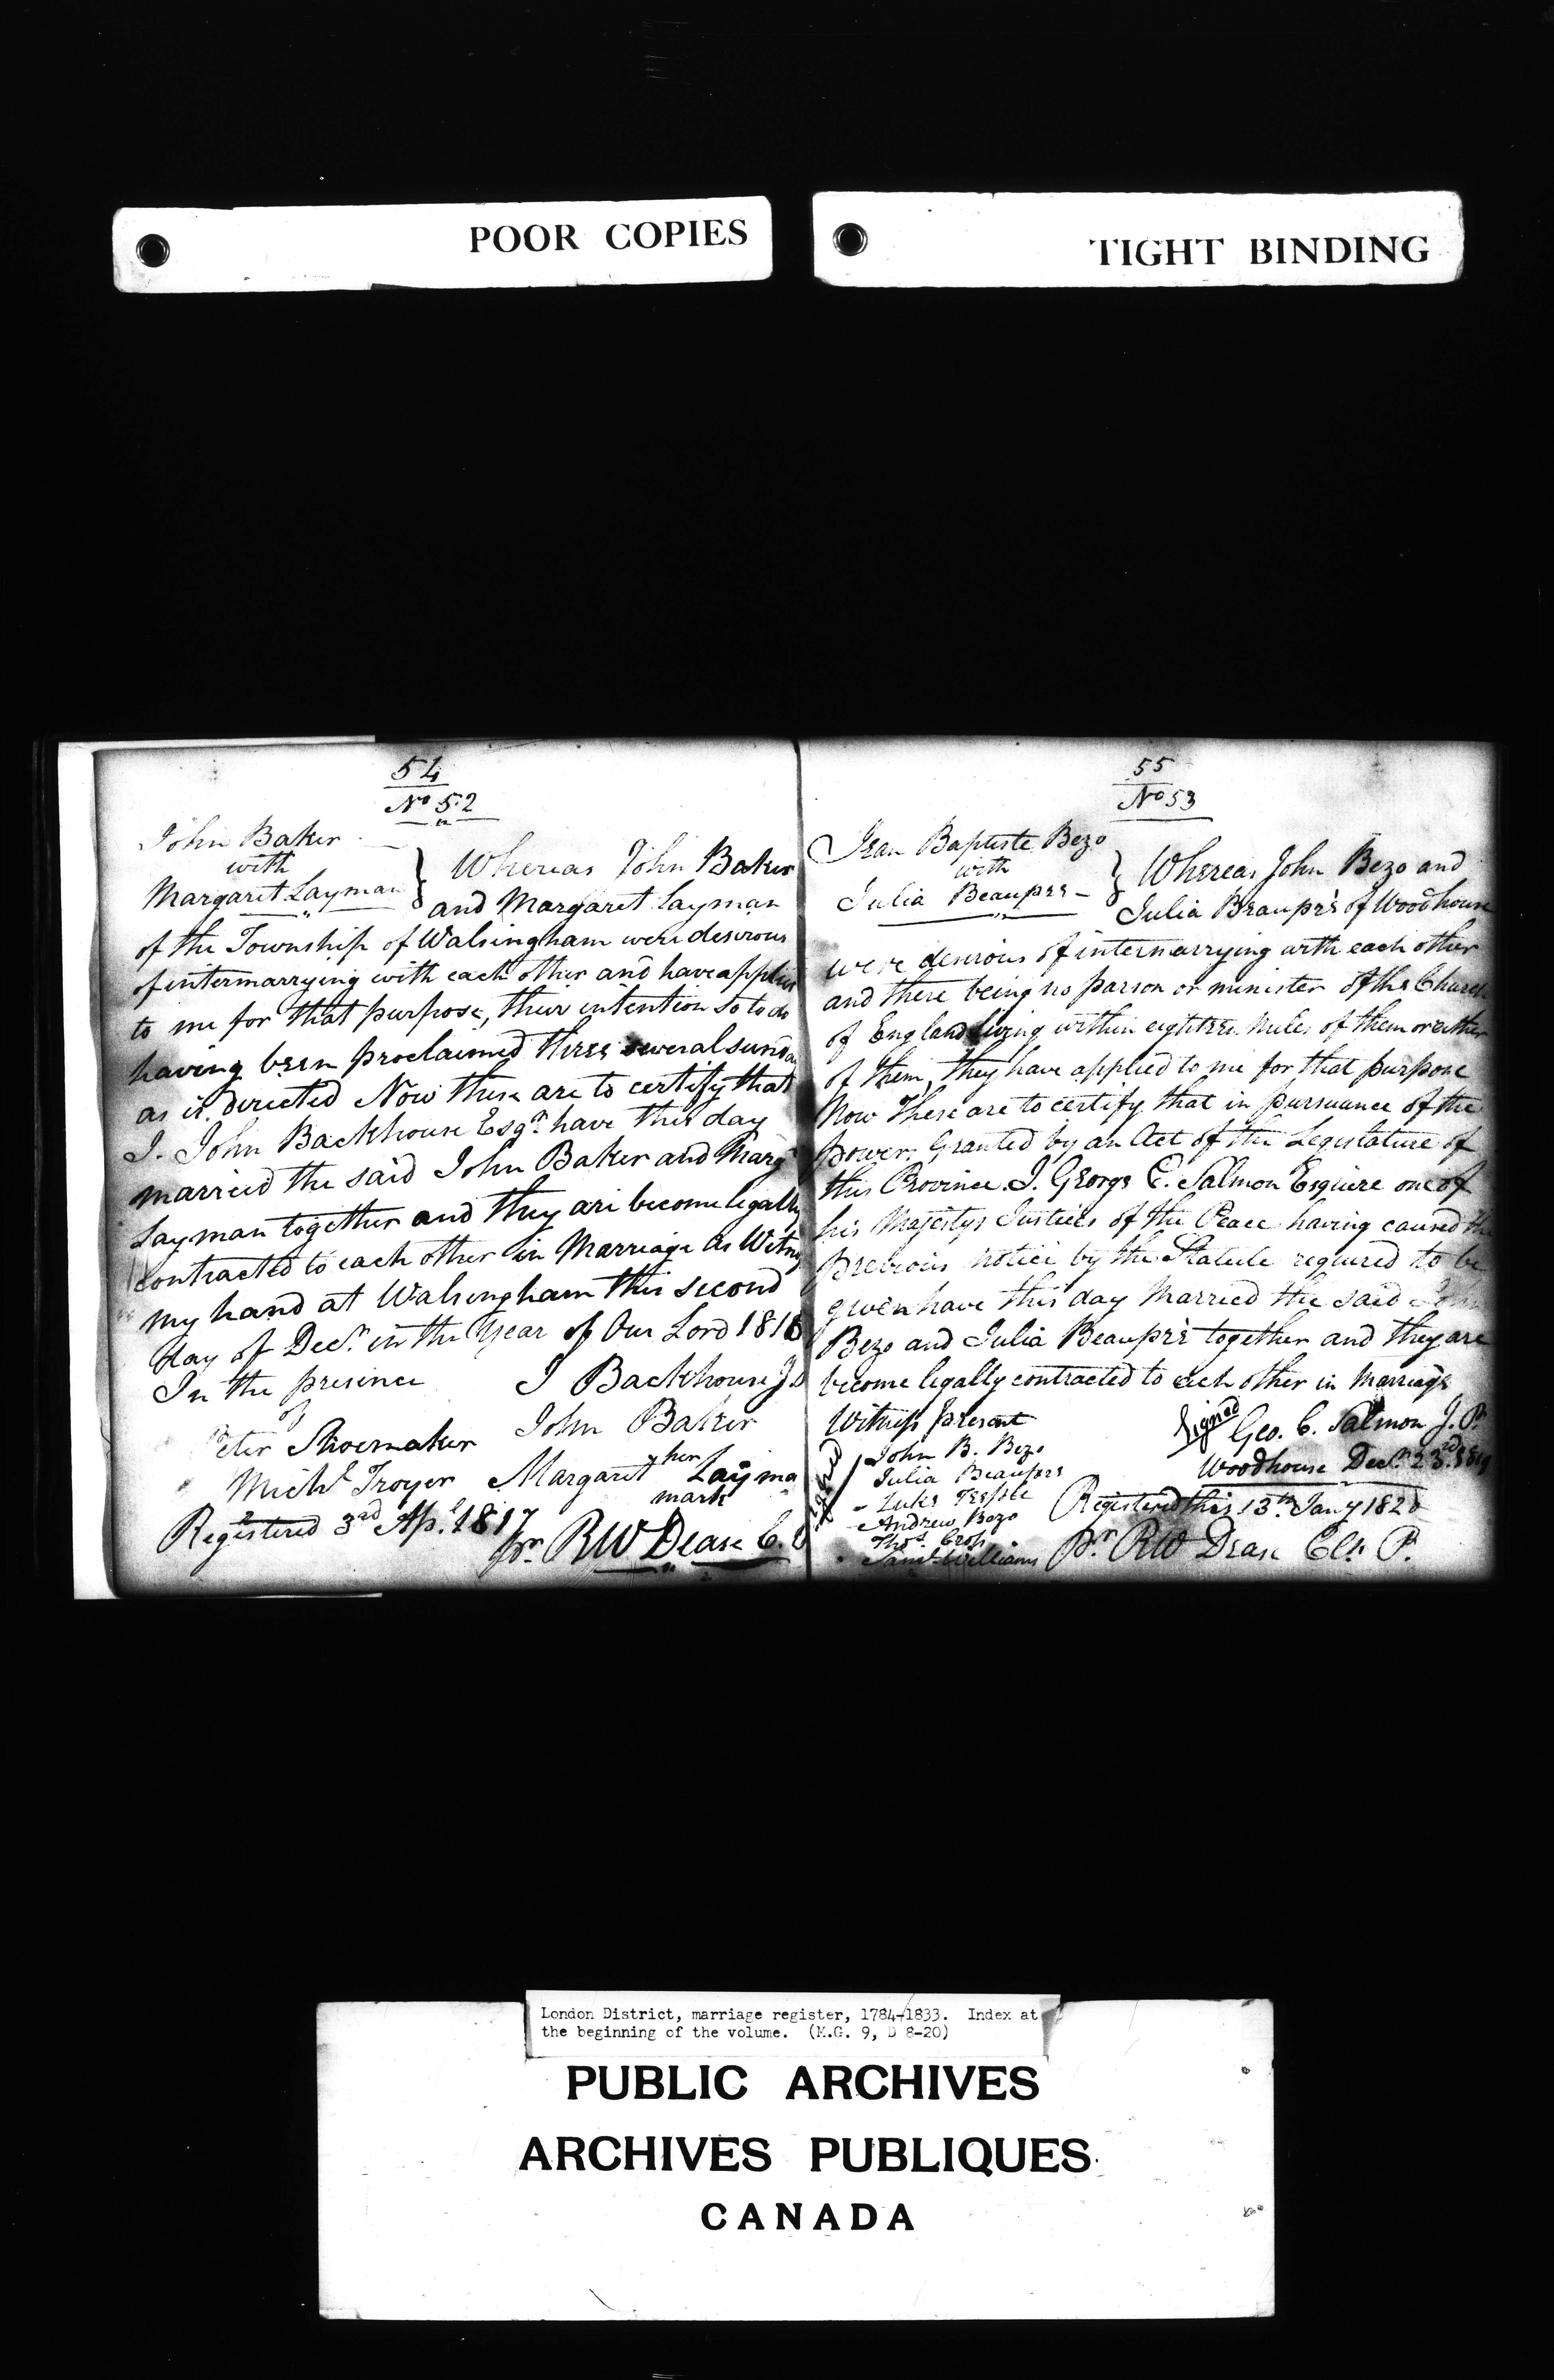 POOR COPIES
TIGHT BINDING
54
No 52
John Baker
with
Margaret Layman
Whereas John Baker
and Margaret Layman
of the Township of Walsingham were desirous
of intermarrying with each other and have applied
to me for that purpose, their intention so to do
having been proclaimed three several sunda
as is directed Now these are to certify that
I. John Backhouse Esqr. have this day
married the said John Baker and Marg
Layman together and they are become legally
contracted to each other in Marriage As Witness
my hand at Walsingham this second
day of Decr. in the Year of Our Lord 1816
In the presence
of
J Backhouse J.
Peter Shoemaker
John Baker
Michl Troyer
Margaret her Layma
mark
Registered 3rd Apl. 1817
pr. RW Dease C.
55
No 53
Jean Baptiste Bezo
with
Julia Beaupré
Whereas John Bezo and
Julia Beaupré of Woodhouse
were desirous of intermarrying with each other
and there being no parson or minister of the Church
of England living within eighteen Miles of them or either
of Them, they have applied to me for that purpose
Now These are to certify that in pursuance of the
powers Granted by an Act of the Legislature of
this Province. I. George C. Salmon Esquire one of
his Majestys Justices of the Peace having caused the
previous notice by the Statute required to be
given have this day Married the said John
Bezo and Julia Beaupré together and they are
become legally contracted to each other in Marriage
Witness present
Signed Geo. C. Salmon J.P.
Woodhouse Decr. 23rd 1819
Signed
John B. Bezo
Julia Beaupré
Luke
Andrew Bezo
Thos. Cross
Saml. Williams
Registered this 13th Jany 1820
Pr RW Dease Clk P.
London District, marriage register, 1784-1833. Index at
the beginning of the volume. (M.G. 9, D 8-20)
PUBLIC ARCHIVES
ARCHIVES PUBLIQUES
CANADA